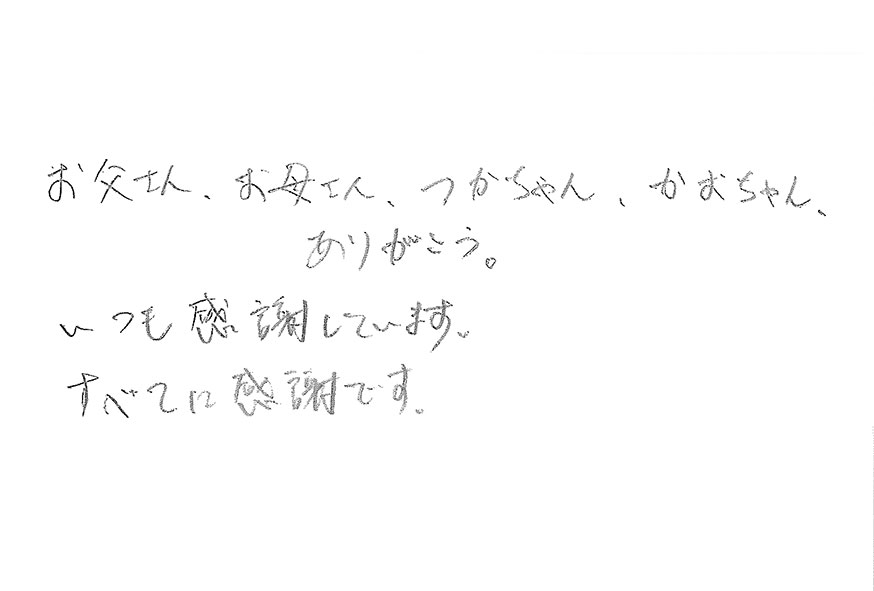 お父さん、お母さん、つかちゃん、かおちゃん、
ありがとう。
いつも感謝しています。
すべてに感謝です。